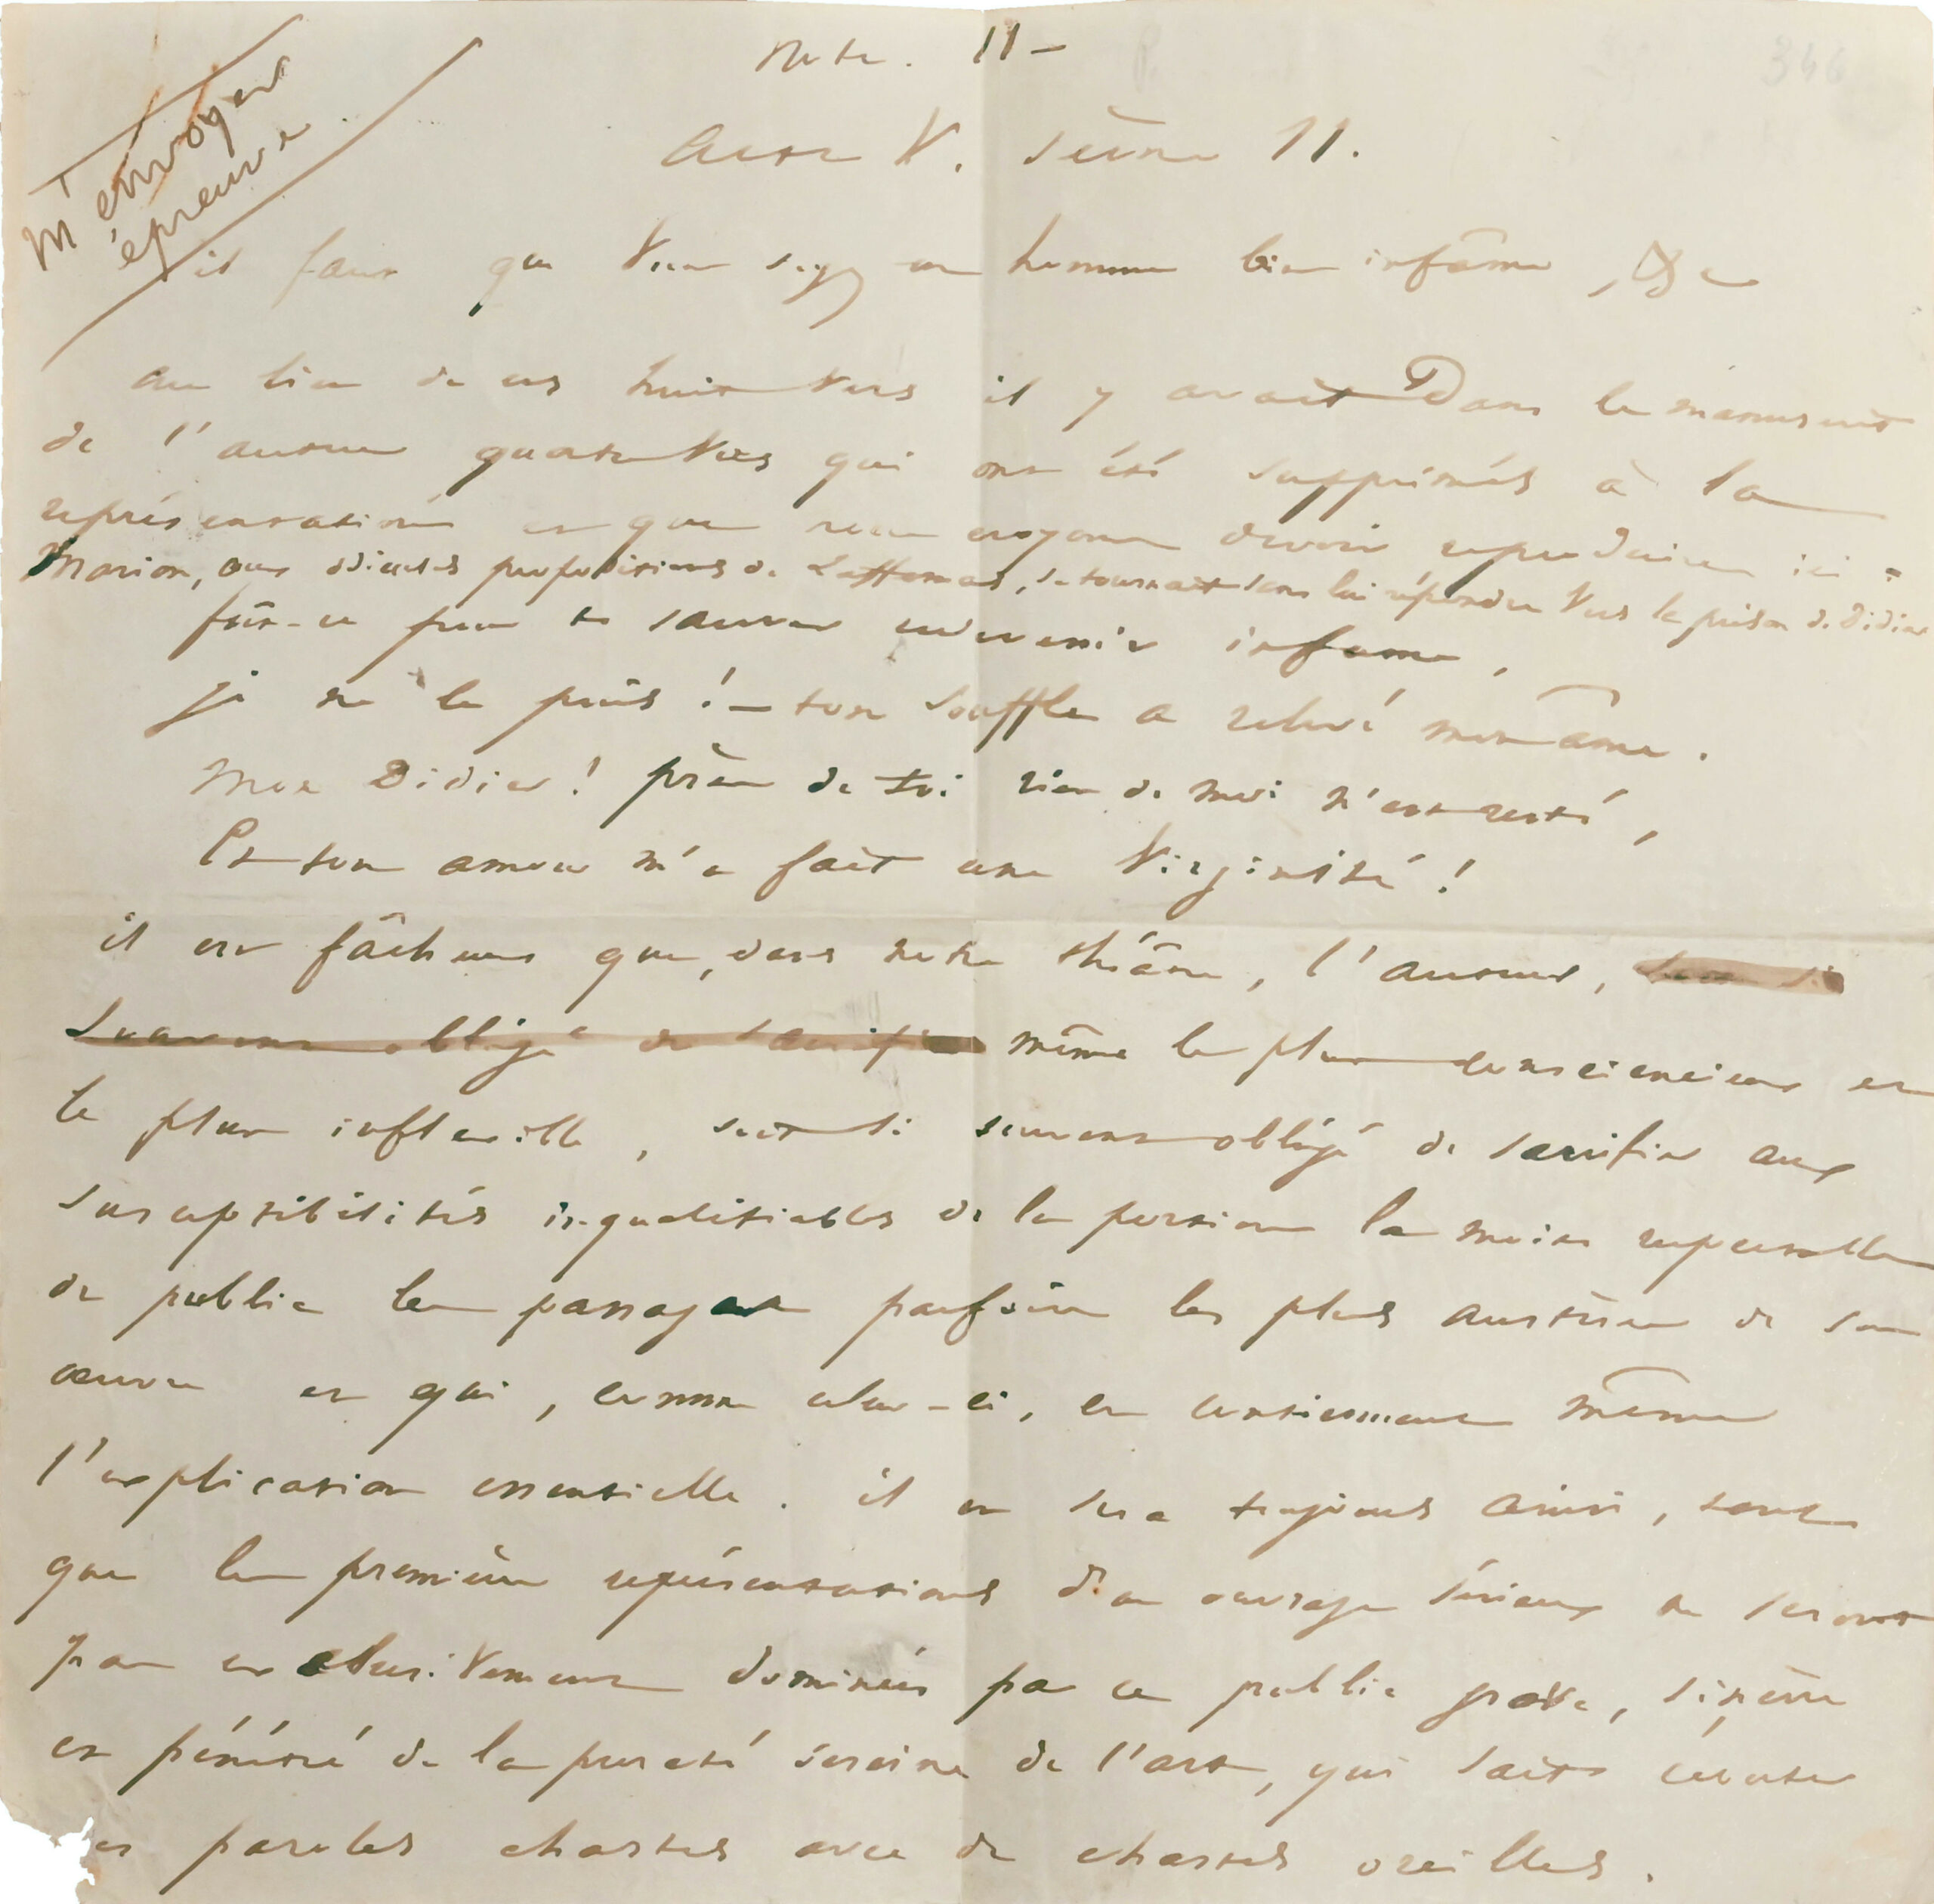 M'envoyer
épreuve.
346
Note. II –
Acte V. Scène II.
il faut que vous soyez un homme bien infâme, &c
au lieu de ces huit vers il y avait dans le manuscrit
de l'auteur quatre vers qui ont été supprimés à la
représentation et que nous croyons devoir reproduire ici :
Marion, aux odieuses propositions de Laffemas, se tournait sans lui répondre vers la prison de Didier
fût-ce pour te sauver redevenir infame,
je ne le puis ! – ton souffle a relevé mon âme.
Mon Didier ! près de toi rien de moi n'est resté,
Et ton amour m'a fait une virginité !
il est fâcheux que, dans notre théâtre, l'auteur, soit si
souvent obligé de sacrifier même le plus consciencieux et
le plus inflexible, soit si souvent obligé de sacrifier aux
susceptibilités inqualifiables de la portion la moins respectable
du public les passages parfois les plus austères de son
œuvre et qui, comme celui-ci, en contiennent même
l'explication essentielle. il en sera toujours ainsi, tant
que les premières représentations d'un ouvrage sérieux ne seront
pas exclusivement dominées par ce public grave, sincère
et pénétré de la pureté sereine de l'art, qui sait écouter
les paroles chastes avec de chastes oreilles.